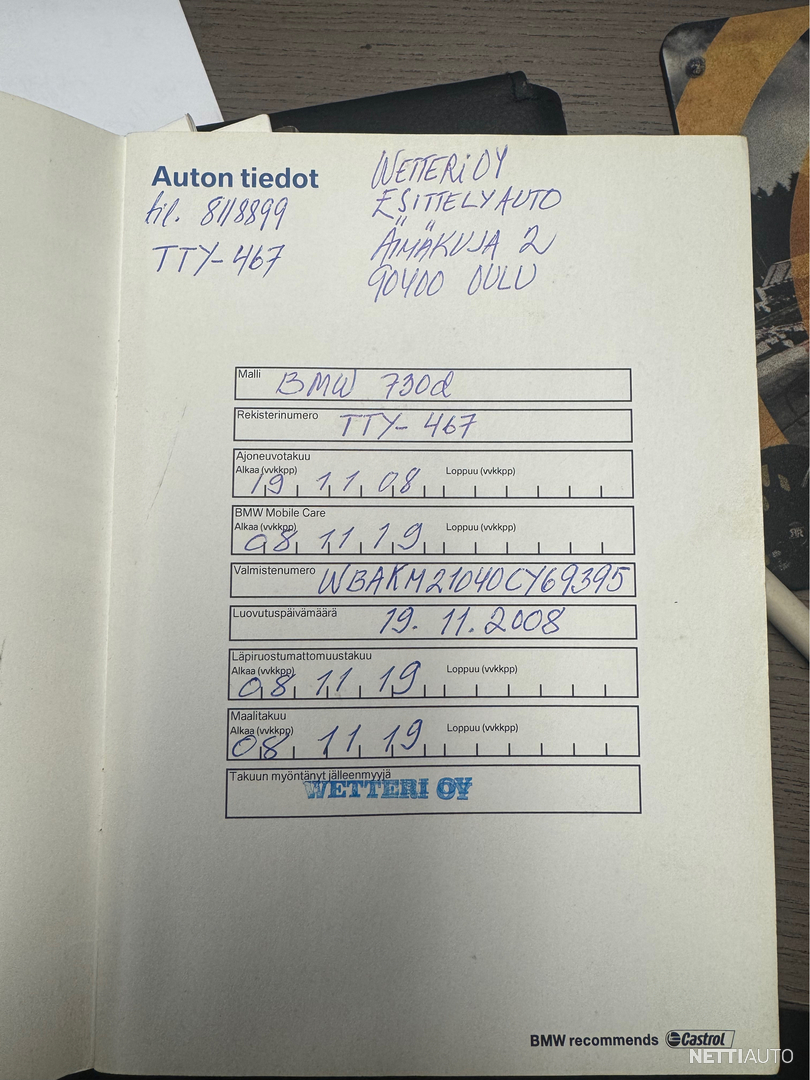 Auton tiedot
til. 8118899
TTY-467
WETTERI OY
ESITTELYAUTO
ÄIMÄKUJA 2
90400 OULU
Malli BMW 730d
Rekisterinumero TTY-467
Ajoneuvotakuu
Alkaa (vvkkpp) 19 11 08 Loppuu (vvkkpp)
BMW Mobile Care
Alkaa (vvkkpp) 08 11 19 Loppuu (vvkkpp)
Valmistenumero WBAKM21040CY69395
Luovutuspäivämäärä 19. 11. 2008
Läpiruostumattomuustakuu
Alkaa (vvkkpp) 08 11 19 Loppuu (vvkkpp)
Maalitakuu
Alkaa (vvkkpp) 08 11 19 Loppuu (vvkkpp)
Takuun myöntänyt jälleenmyyjä
WETTERI OY
BMW recommends Castrol
NETTIAUTO